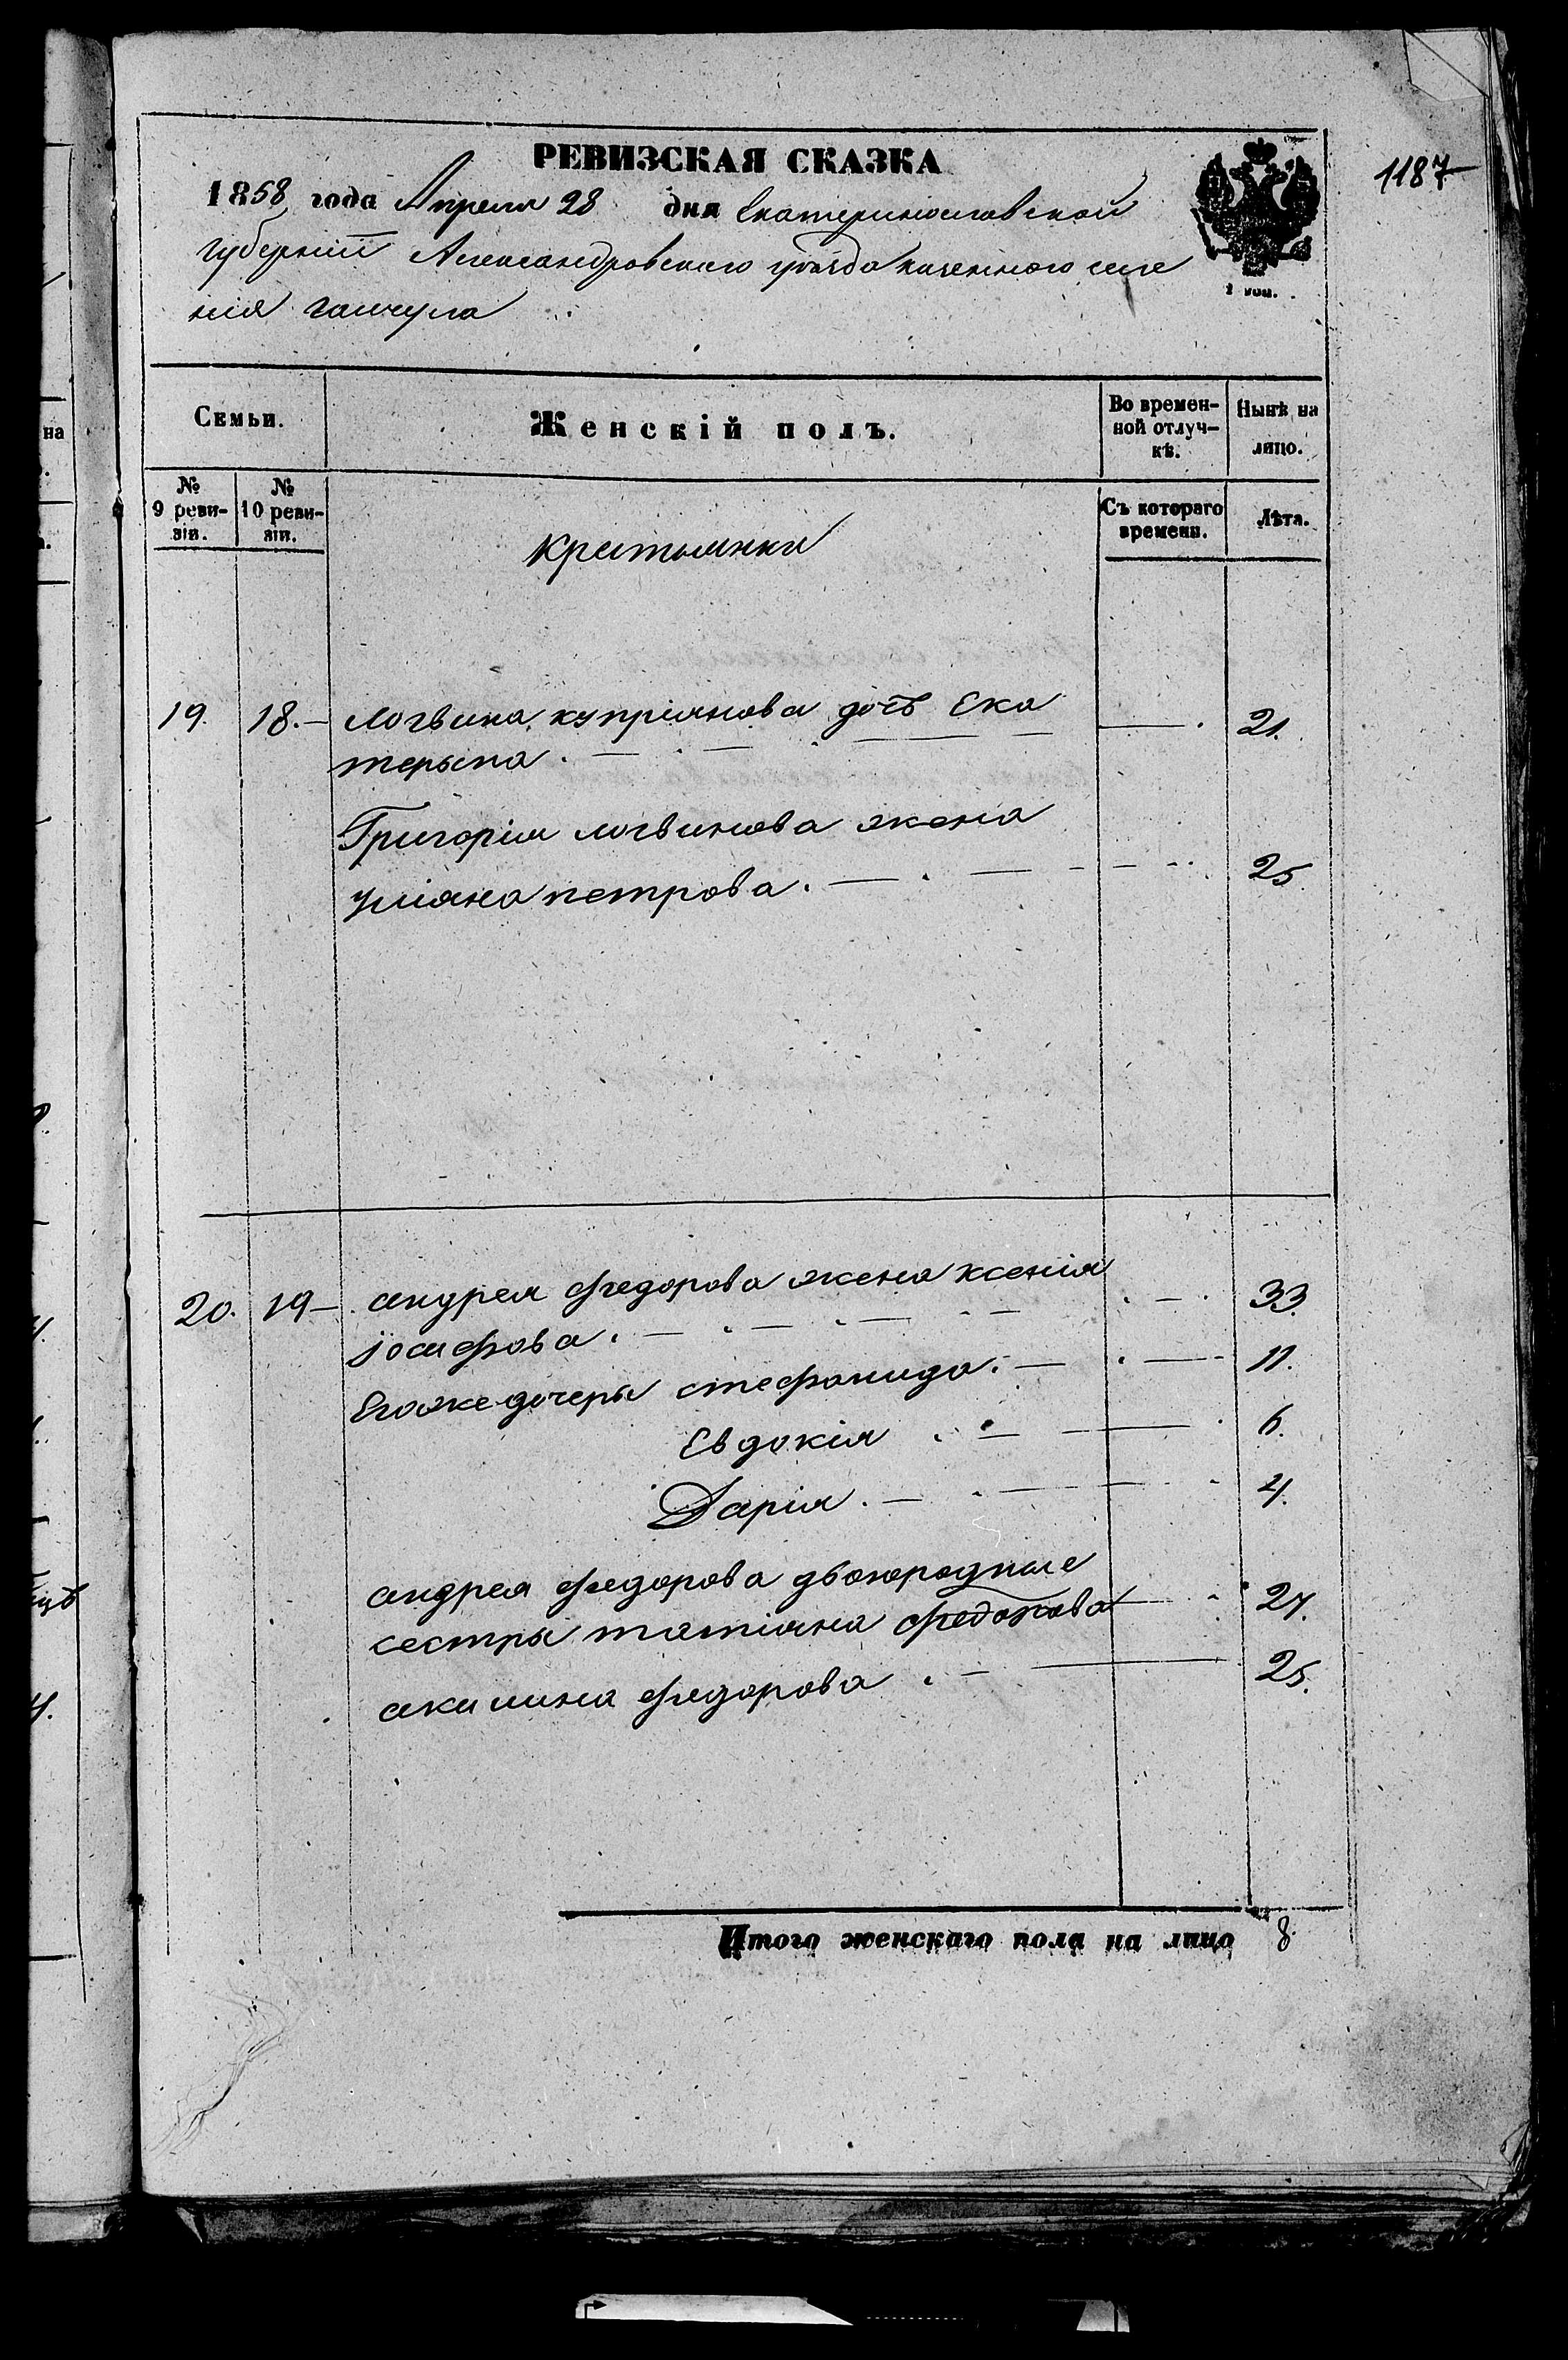 РЕВИЗСКАЯ СКАЗКА
1187
1858 года Апреля 28 дня Екатеринославской
губернiи Александровскаго уѣзда казенного селе
нія гайчула
Семьи.
Женскій полъ.
Во времен-
ной отлуч-
кѣ.
Нынѣ на
лицо.
№
9 реви-
зіи.
№
10 реви-
зіи.
Съ котораго
времени.
Лѣта.
крестьянки
19. 18.— Логвина купріянова дочь Ека 21.
терына.
Григорія логвинова жена
уліяна петрова. 25
20. 19— андрея федорова жена ксенія 33.
іосифова.
Егоже дочеры стефанида. 11.
Евдокія 6.
Дарія. 4.
андрея федорова двоюродные
сестры татіяна федотова 27.
акилина федорова 25.
Итого женскаго пола на лицо 8.